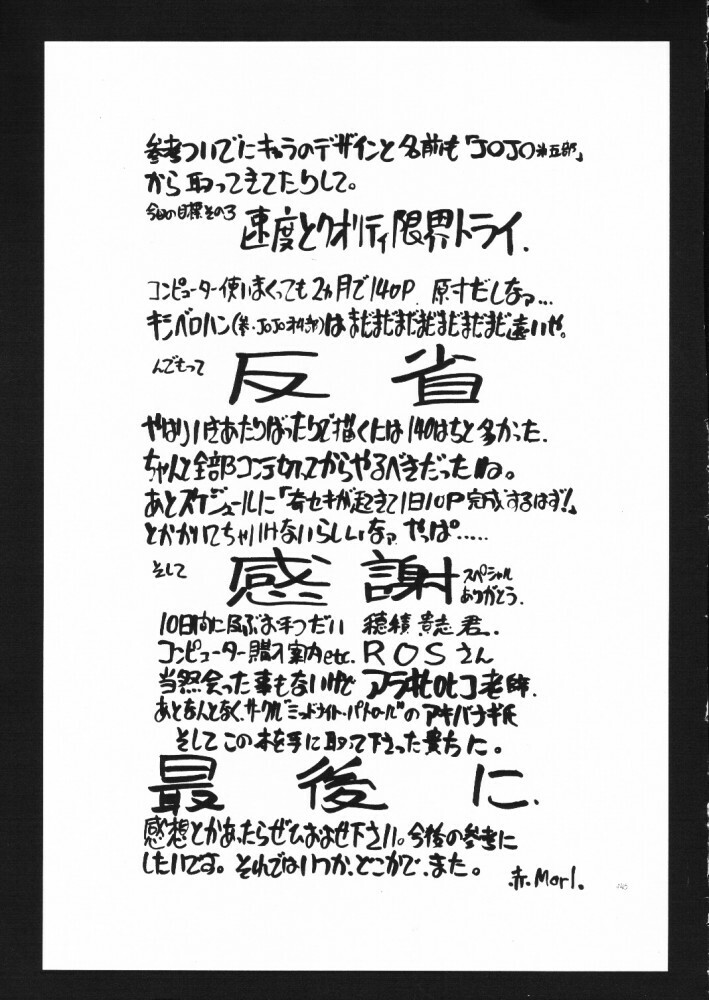 参考ついでにキャラのデザインと名前も「JOJO第五部」
から取ってきてたりして。
今回の目標その3
速度とクオリティ限界トライ.
コンピューター使いまくっても2ヵ月で140P. 原寸だしなァ…
キシベロハン(参・JOJO)はまだまだまだまだまだまだまだ遠いや。
んでもって
反省
やはり行きあたりばったりで描くには140はちと多かった.
ちゃんと全部コンテ切ってからやるべきだったね。
あとスケジュールに「奇セキが起きて1日10P完成するはず!」
とかかいてちゃいけないらしいなァ やっぱ……
そして
感謝
スペシャル
ありがとう.
10日間に及ぶお手つだい 穂積貴志君.
コンピューター購入案内etc. ROSさん
当然会った事もないけど アラキヒロヒコ老師.
あとなんとなく、サークル"ミッドナイト・パトロール"のアキバナギ氏
そしてこの本を手に取って下さった貴方に。
最後に.
感想とかあったらぜひおよせ下さい。今後の参考に
したいです。それではいつか、どこかで、また。
赤.Morl.
140